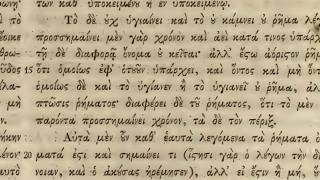 των καθ' ὑποκειμένου ἢ ἐν ὑποκειμένῳ.
Τὸ δὲ οὐχ ὑγιαίνει καὶ τὸ οὐ κάμνει οὐ ῥῆμα λέγ
οικε προσσημαίνει μὲν γὰρ χρόνον καὶ ἀεὶ κατά τινος ὑπάρ
τῇ δὲ διαφορᾷ ὄνομα οὐ κεῖται· ἀλλ' ἔστω ἀόριστον ῥῆμ
εῦδος 15 ὅτι ὁμοίως ἐφ' ὁτουοῦν ὑπάρχει, καὶ ὄντος καὶ μὴ ὄν
ὁμοίως δὲ καὶ τὸ ὑγίανεν ἢ τὸ ὑγιανεῖ οὐ ῥῆμα, ἀλλ
μή πτῶσις ῥήματος· διαφέρει δὲ τοῦ ῥήματος, ὅτι τὸ μὲν
παρόντα προσσημαίνει χρόνον, τὰ δὲ τὸν πέριξ.
ήκην Αὐτὰ μὲν οὖν καθ' ἑαυτὰ λεγόμενα τὰ ῥήματα ὀν
20 ματά ἐστι καὶ σημαίνει τι (ἵστησι γὰρ ὁ λέγων τὴν δι
νοιαν, καὶ ὁ ἀκούσας ἠρέμησεν), ἀλλ' εἰ ἔστιν ἢ μή, οὔ